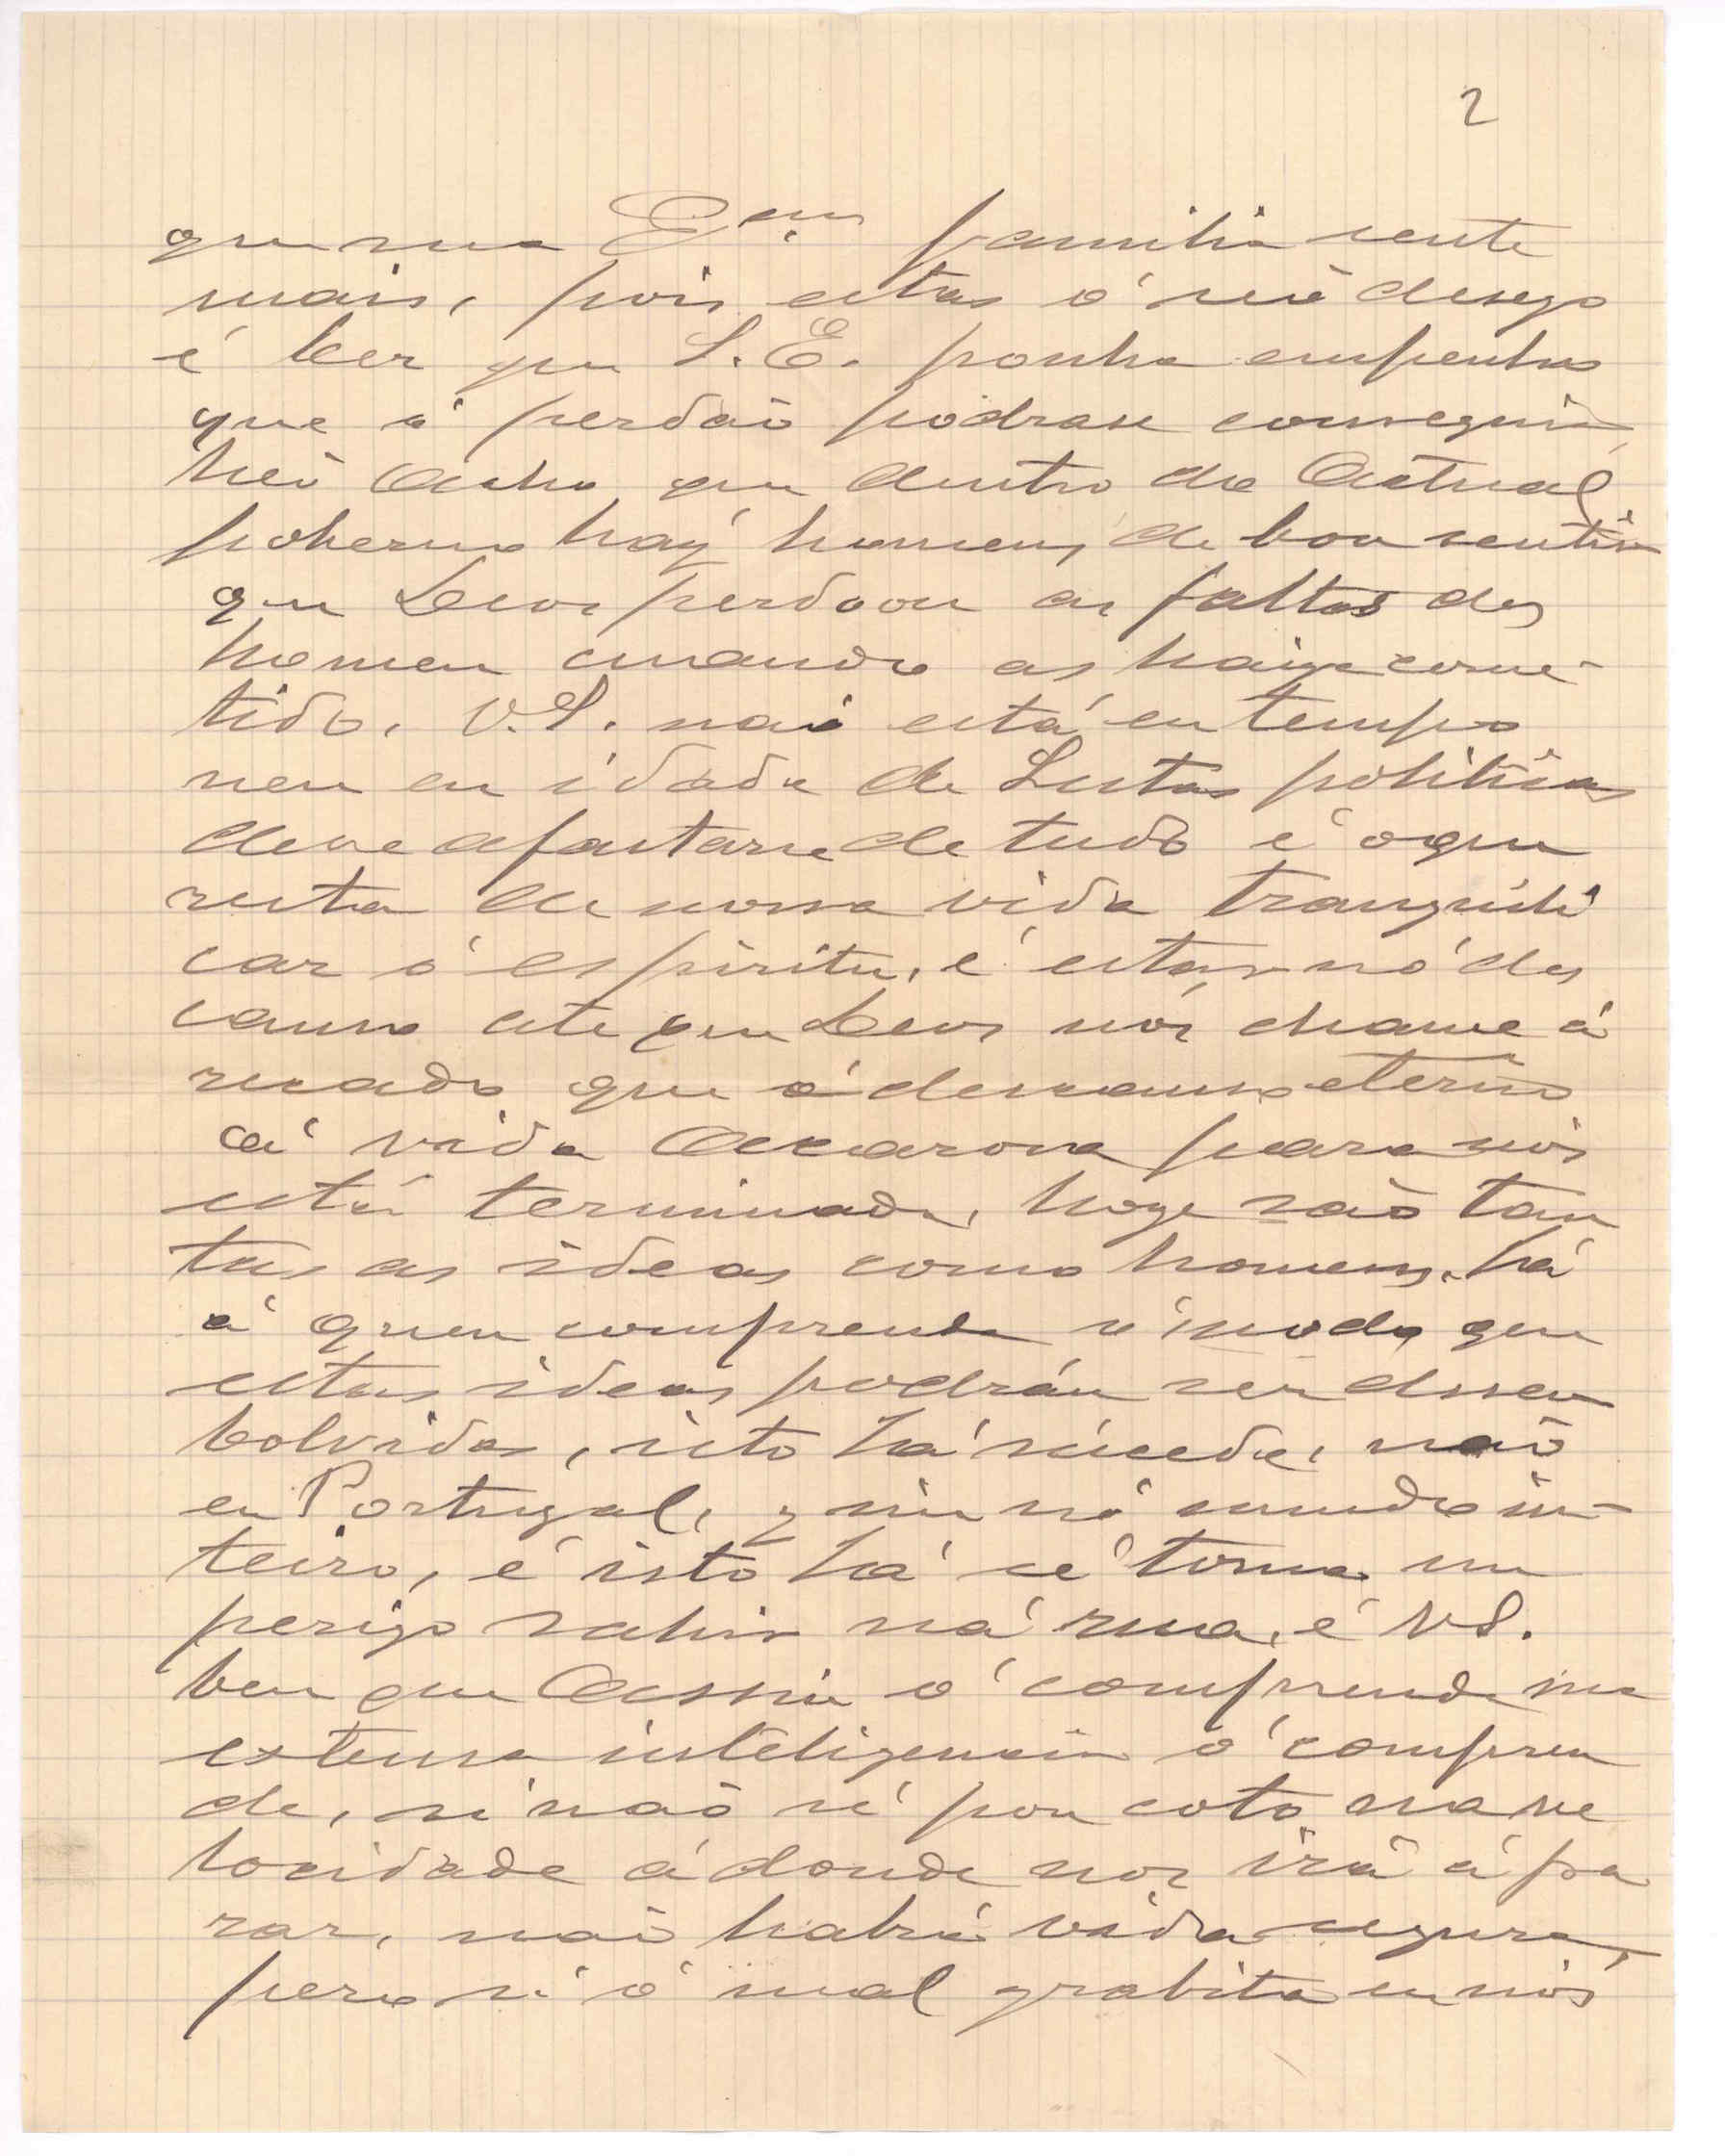 2
que sua Ex.ma familia sente
mais, pois estas o seu desego
é ber que S. E. ponha empenhos
que o perdaõ podrase conseguir,
heu acho que dentro do Actual
poherno haý homens de bon sentir
que Deos perdoou as faltas dos
homen cuando as haiga come-
tido. V. S. naõ está en tempo
nen en idade de Lutas politicas
deve afastarse de tudo é o que
resta de nossa vida tranquili
car ó espiritu, é estar nó des
canso ate que Deos nós chame á
recado que ó descanso eterno
á vida Accarova para nós
está terminada, hoge saõ tan
tas as ideas como homens, há
á quen comprende ó modo que
estas ideas podrán ser desen
bolvidas, isto há sucede, naõ
en Portugal, y sin nó mundo in-
teiro, é isto há sé torna un
perigo sahir ná rua, é V. S.
ben que Assin o comprende sua
extensa inteligencia ó compren
de, si naõ sé pon coto na ve
locidade á donde nos irá á pa
rar, naõ habrá vida segura,
pero si ó mal grabita en nós